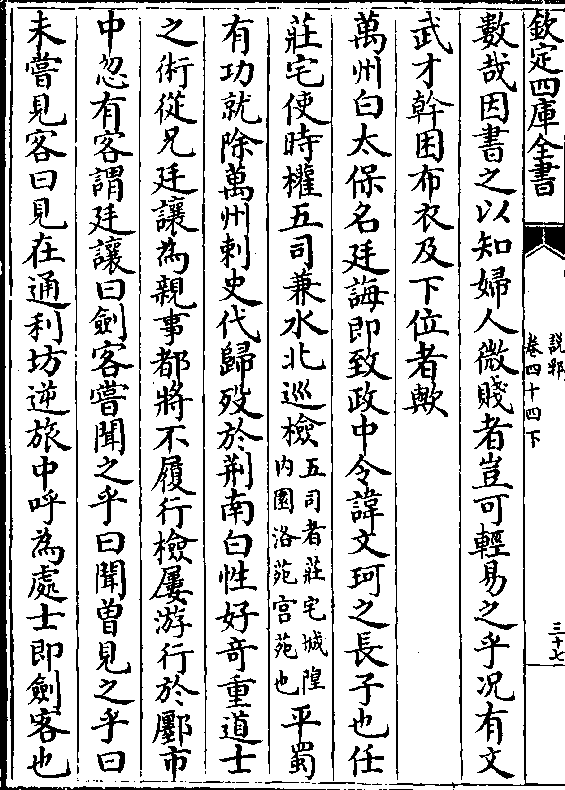 欽定四庫全書
說郛
卷四十四下
三十七
數哉因書之以知婦人微賤者豈可輕易之乎况有文
武才幹困布衣及下位者歟
萬州白太保名廷誨即致政中令諱文珂之長子也任
莊宅使時權五司兼水北巡檢五司者莊宅城隍内園洛苑宫苑也平蜀
有功就除萬州刺史代歸殁於荆南白性好竒重道士
之術從兄廷讓為親事都將不履行檢屢游行於鄽市
中忽有客謂廷讓曰劍客嘗聞之乎曰聞曽見之乎曰
未嘗見客曰見在通利坊逆旅中呼為處士即劍客也